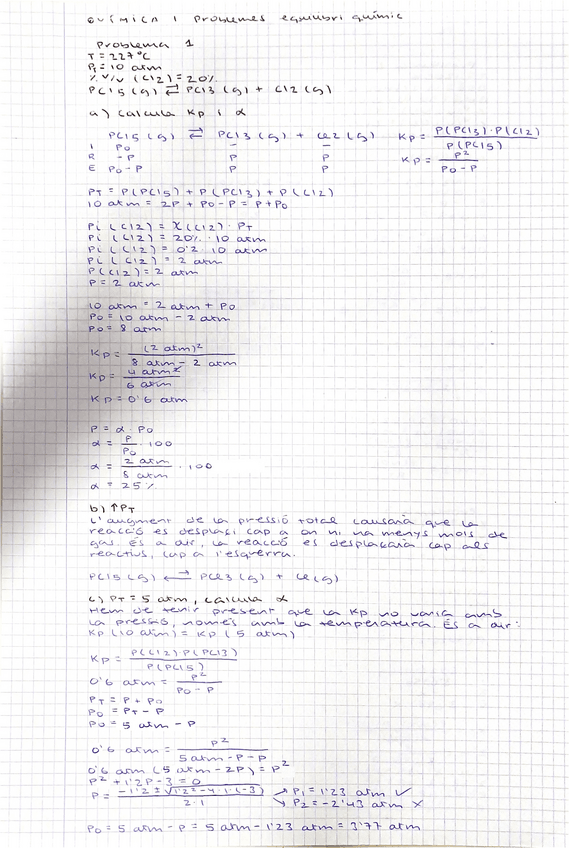 QUÍMICA 1 Problemes equilibri químic
Problema 1
T = 227ºC
PT = 10 atm
% V/V (Cl2) = 20%
PCl5 (g) ⇄ PCl3 (g) + Cl2 (g)
a) Calcula Kp i α
PCl5 (g) ⇄ PCl3 (g) + Cl2 (g) Kp = P(PCl3)·P(Cl2) / P(PCl5)
I P0 - -
R -P P P Kp = P² / P0-P
E P0-P P P
PT = P(PCl5) + P(PCl3) + P(Cl2)
10 atm = 2P + P0 - P = P + P0
Pi (Cl2) = X(Cl2) · PT
Pi (Cl2) = 20% · 10 atm
Pi (Cl2) = 0'2 · 10 atm
Pi (Cl2) = 2 atm
P(Cl2) = 2 atm
P = 2 atm
10 atm = 2 atm + P0
P0 = 10 atm - 2 atm
P0 = 8 atm
Kp = (2 atm)² / 8 atm - 2 atm
Kp = 4 atm² / 6 atm
Kp = 0'6 atm
P = α · P0
α = P / P0 · 100
α = 2 atm / 8 atm · 100
α = 25%
b) ↑PT
L'augment de la pressió total causaria que la
reacció es desplaci cap a on hi ha menys mols de
gas. És a dir, la reacció es desplaçaria cap als
reactius, cap a l'esquerra.
PCl5 (g) ⇄ PCl3 (g) + Cl (g)
c) PT = 5 atm, calcula α
Hem de tenir present que la Kp no varia amb
la pressió, només amb la temperatura. És a dir:
Kp (10 atm) = Kp (5 atm)
Kp = P(Cl2)·P(PCl3) / P(PCl5)
0'6 atm = P² / P0-P
PT = P + P0
P0 = PT - P
P0 = 5 atm - P
0'6 atm = P² / 5 atm - P - P
0'6 atm (5 atm - 2P) = P²
P² + 1'2P - 3 = 0
P = -1'2 ± √1'2² - 4·1·(-3) / 2·1 → P1 = 1'23 atm ✓
↘ P2 = -2'43 atm ×
P0 = 5 atm - P = 5 atm - 1'23 atm = 3'77 atm